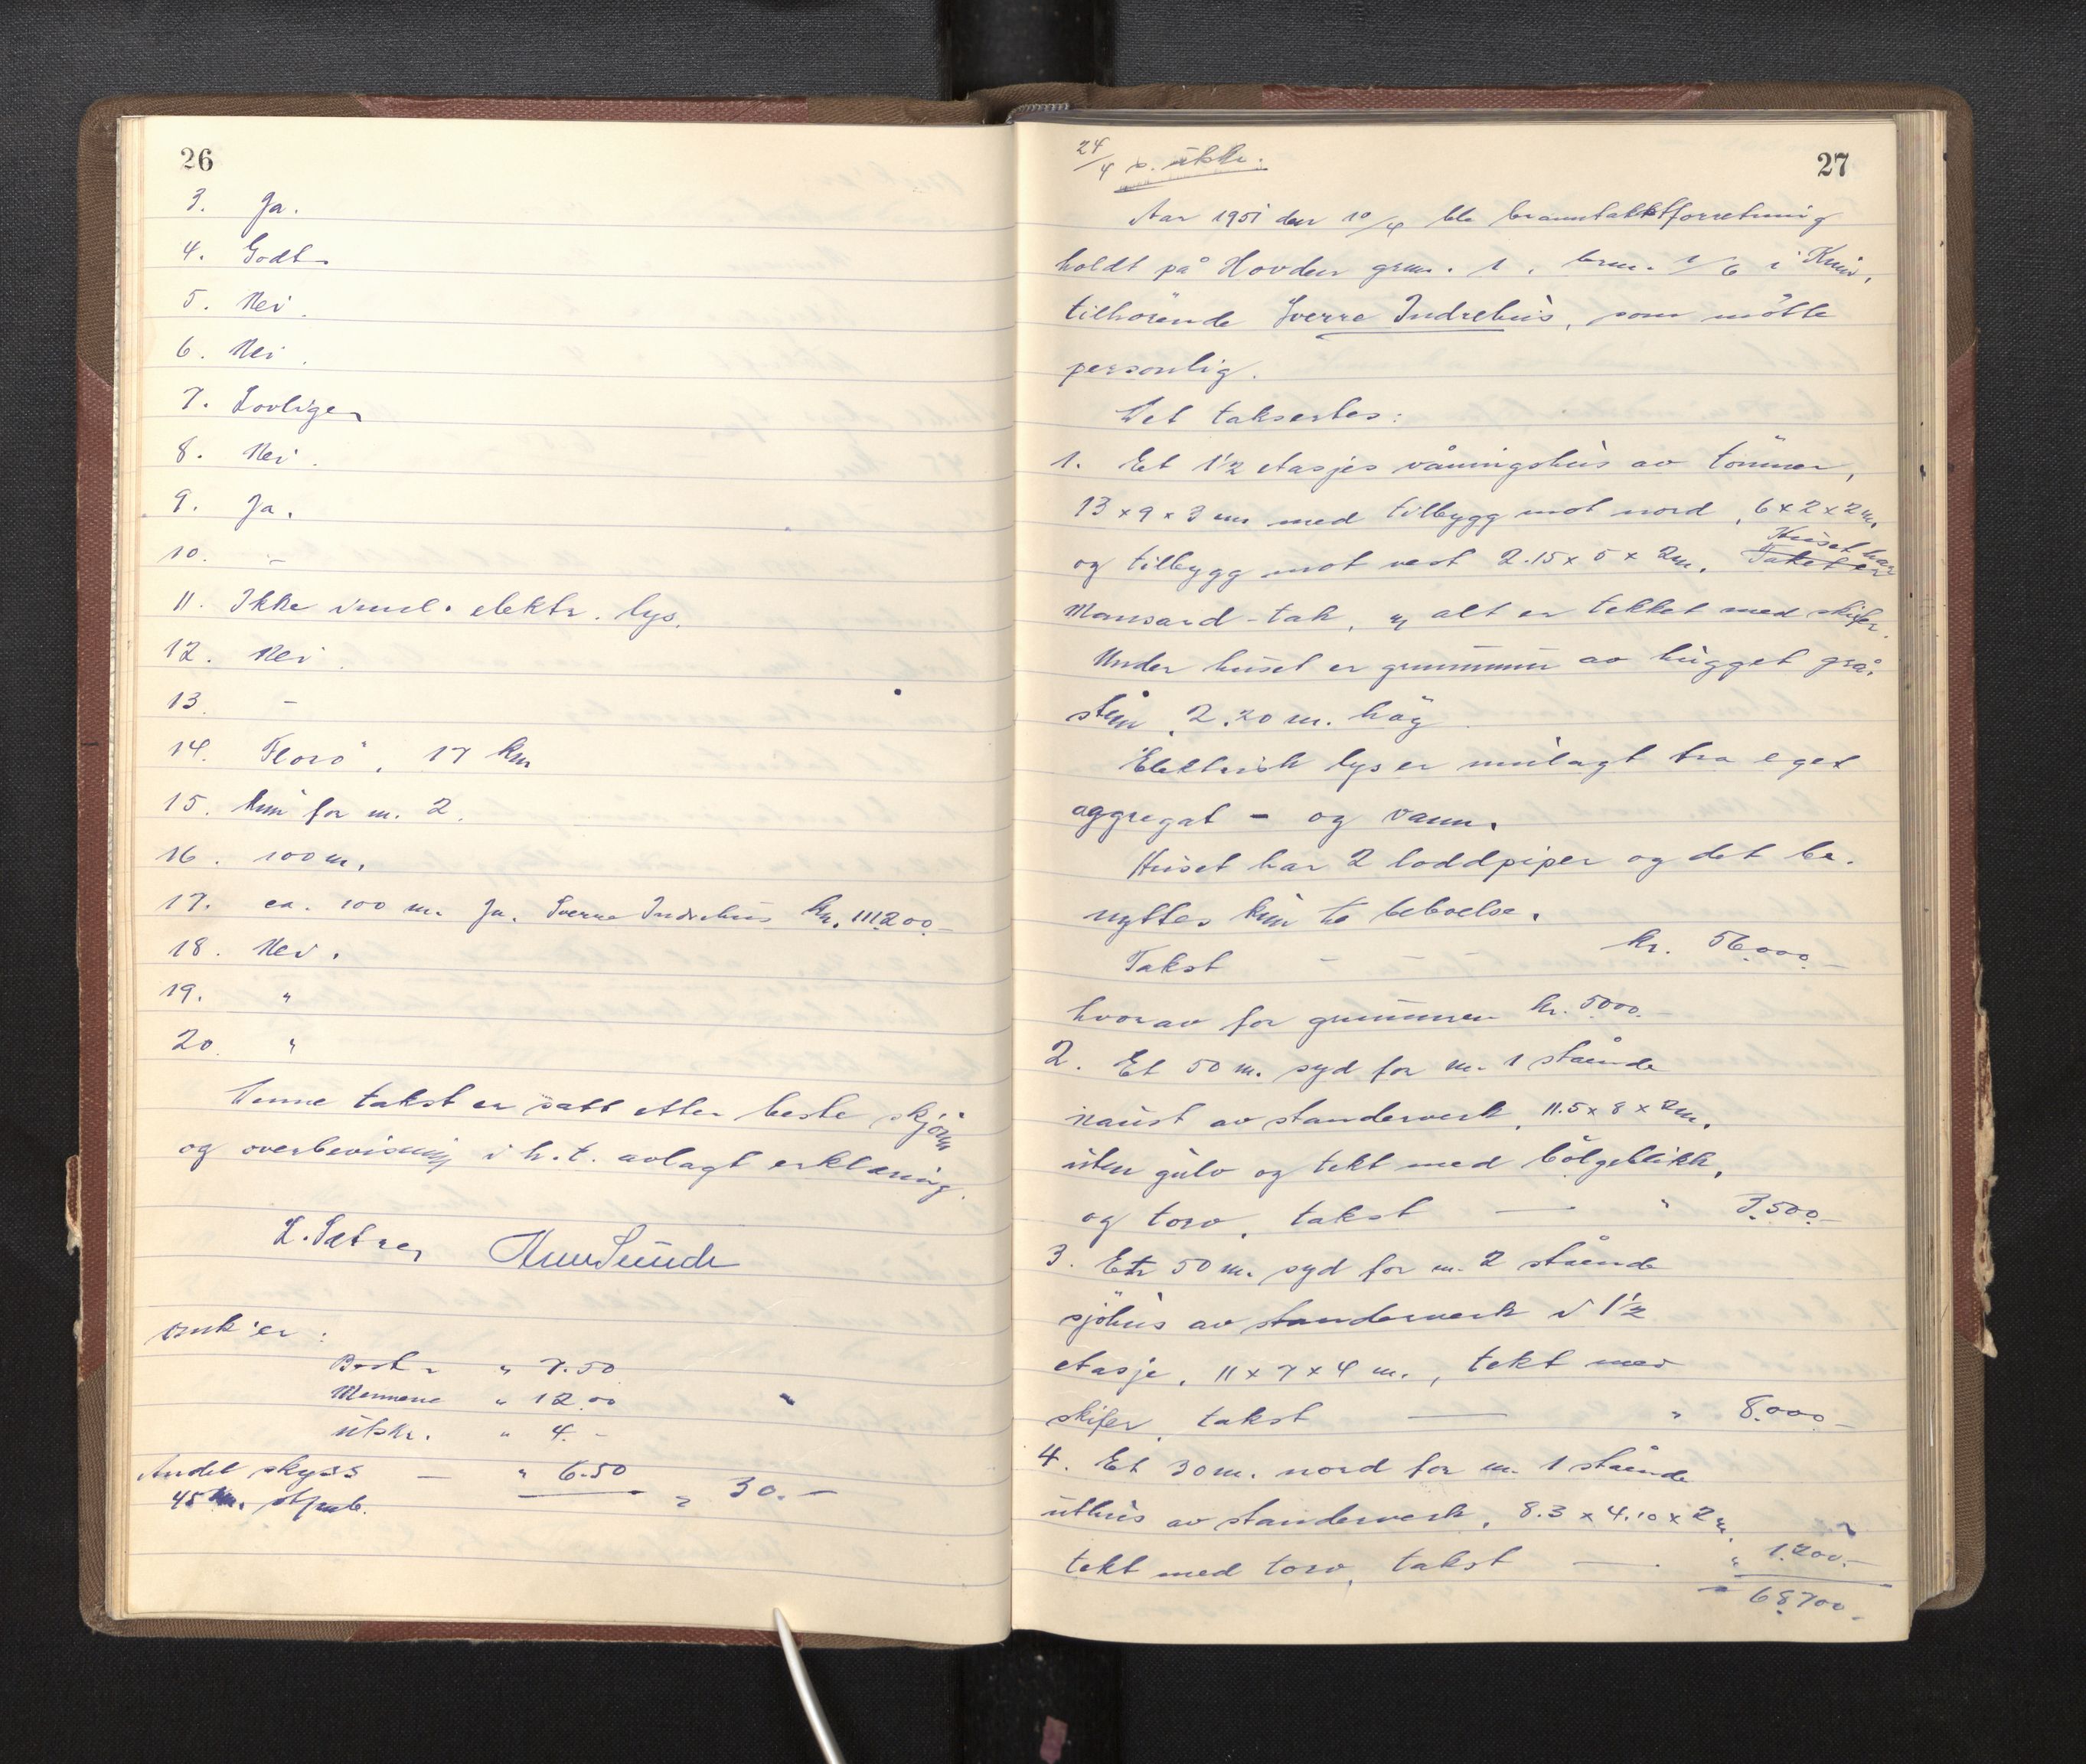 26
3. Ja.
4. Godt
5. Nei.
6. Nei.
7. Lovlige
8. Nei.
9. Ja.
10. -
11. Ikke innl. elektr. lys.
12. Nei.
13. -
14. Florö, 17 km
15. Kun for m. 2.
16. 100 m.
17. ca. 100 m. Ja. Sverre Indrehus kr. 111.200.-
18. Nei.
19. "
20. "
Denne takst er satt etter beste skjönn
og overbevisning i h.t. avlagt erklæring.
L. Sætre,
Omk'er:
Best. " 7.50
Mennene " 12.00
Utskr. " 4.-
Andel skyss — " 6.50 = 30.-
45 km.
24/4 s. utskr.
27
Aar 1951 den 10/4 ble branntakstforretning
holdt på Hovden grnr. 1, brnr. 1/6 i Kinn,
tilhörende Sverre Indrehus, som mötte
personlig.
Det taksertes:
1. Et 1½ etasjes våningshus av tömmer,
13 x 9 x 3 m med tilbygg mot nord, 6 x 2 x 2 m,
og tilbygg mot vest 2.15 x 5 x 2 m. Taket er Huset har
Mansard-tak, og alt er tekket med skifer.
Under huset er grunnmur av hugget grå-
stein, 2.20 m. höy.
Elektrisk lys er innlagt fra eget
aggregat - og vann.
Huset har 2 loddpiper og det be-
nyttes kun to beboelse.
Takst - - - - kr. 56.000.-
hvorav for grunnmuren kr. 5000.-
2. Et 50 m. syd for m. 1 stående
naust av standerverk, 11.5 x 8 x 2 m,
uten gulv og tekt med bölgeblikk,
og torv, takst — " 3.500.-
3. Et 50 m. syd for m. 2 stående
sjöhus av standerverk i 1½
etasje, 11 x 7 x 4 m., tekt med
skifer, takst — " 8.000.-
4. Et 30 m. nord for m. 1 stående
uthus av standerverk, 8.3 x 4.10 x 2 m,
tekt med torv, takst — " 1.200.-
= 68.700.-